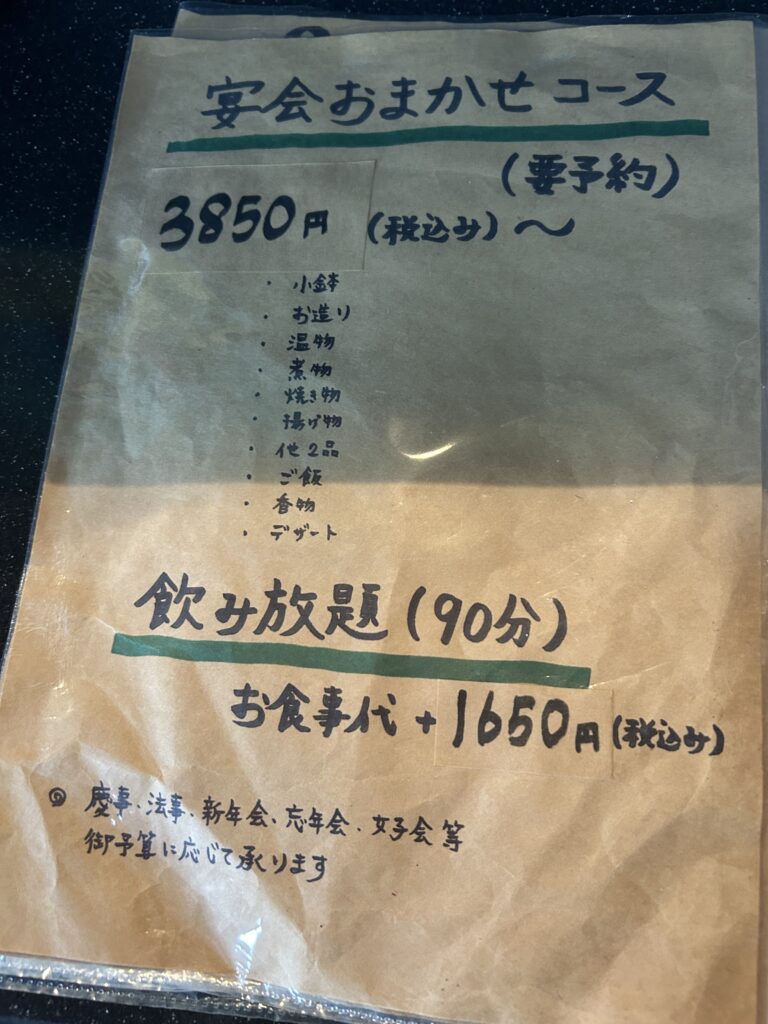 宴会おまかせコース
(要予約)
3850円 (税込み)〜
・小鉢
・お造り
・温物
・煮物
・焼き物
・揚げ物
・他2品
・ご飯
・香物
・デザート
飲み放題(90分)
お食事代+1650円(税込み)
◎ 慶事、法事、新年会、忘年会、女子会等
御予算に応じて承ります